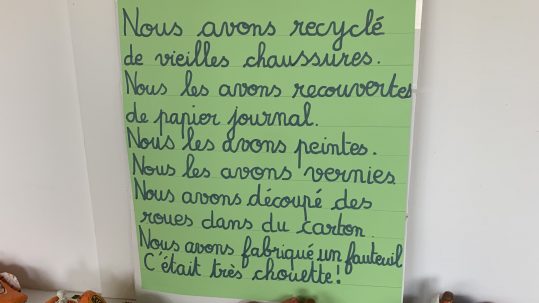 Nous avons recyclé
de vieilles chaussures.
Nous les avons recouvertes
de papier journal.
Nous les avons peintes.
Nous les avons vernies
Nous avons découpé des
roues dans du carton.
Nous avons fabriqué un fauteuil
C'était très chouette!